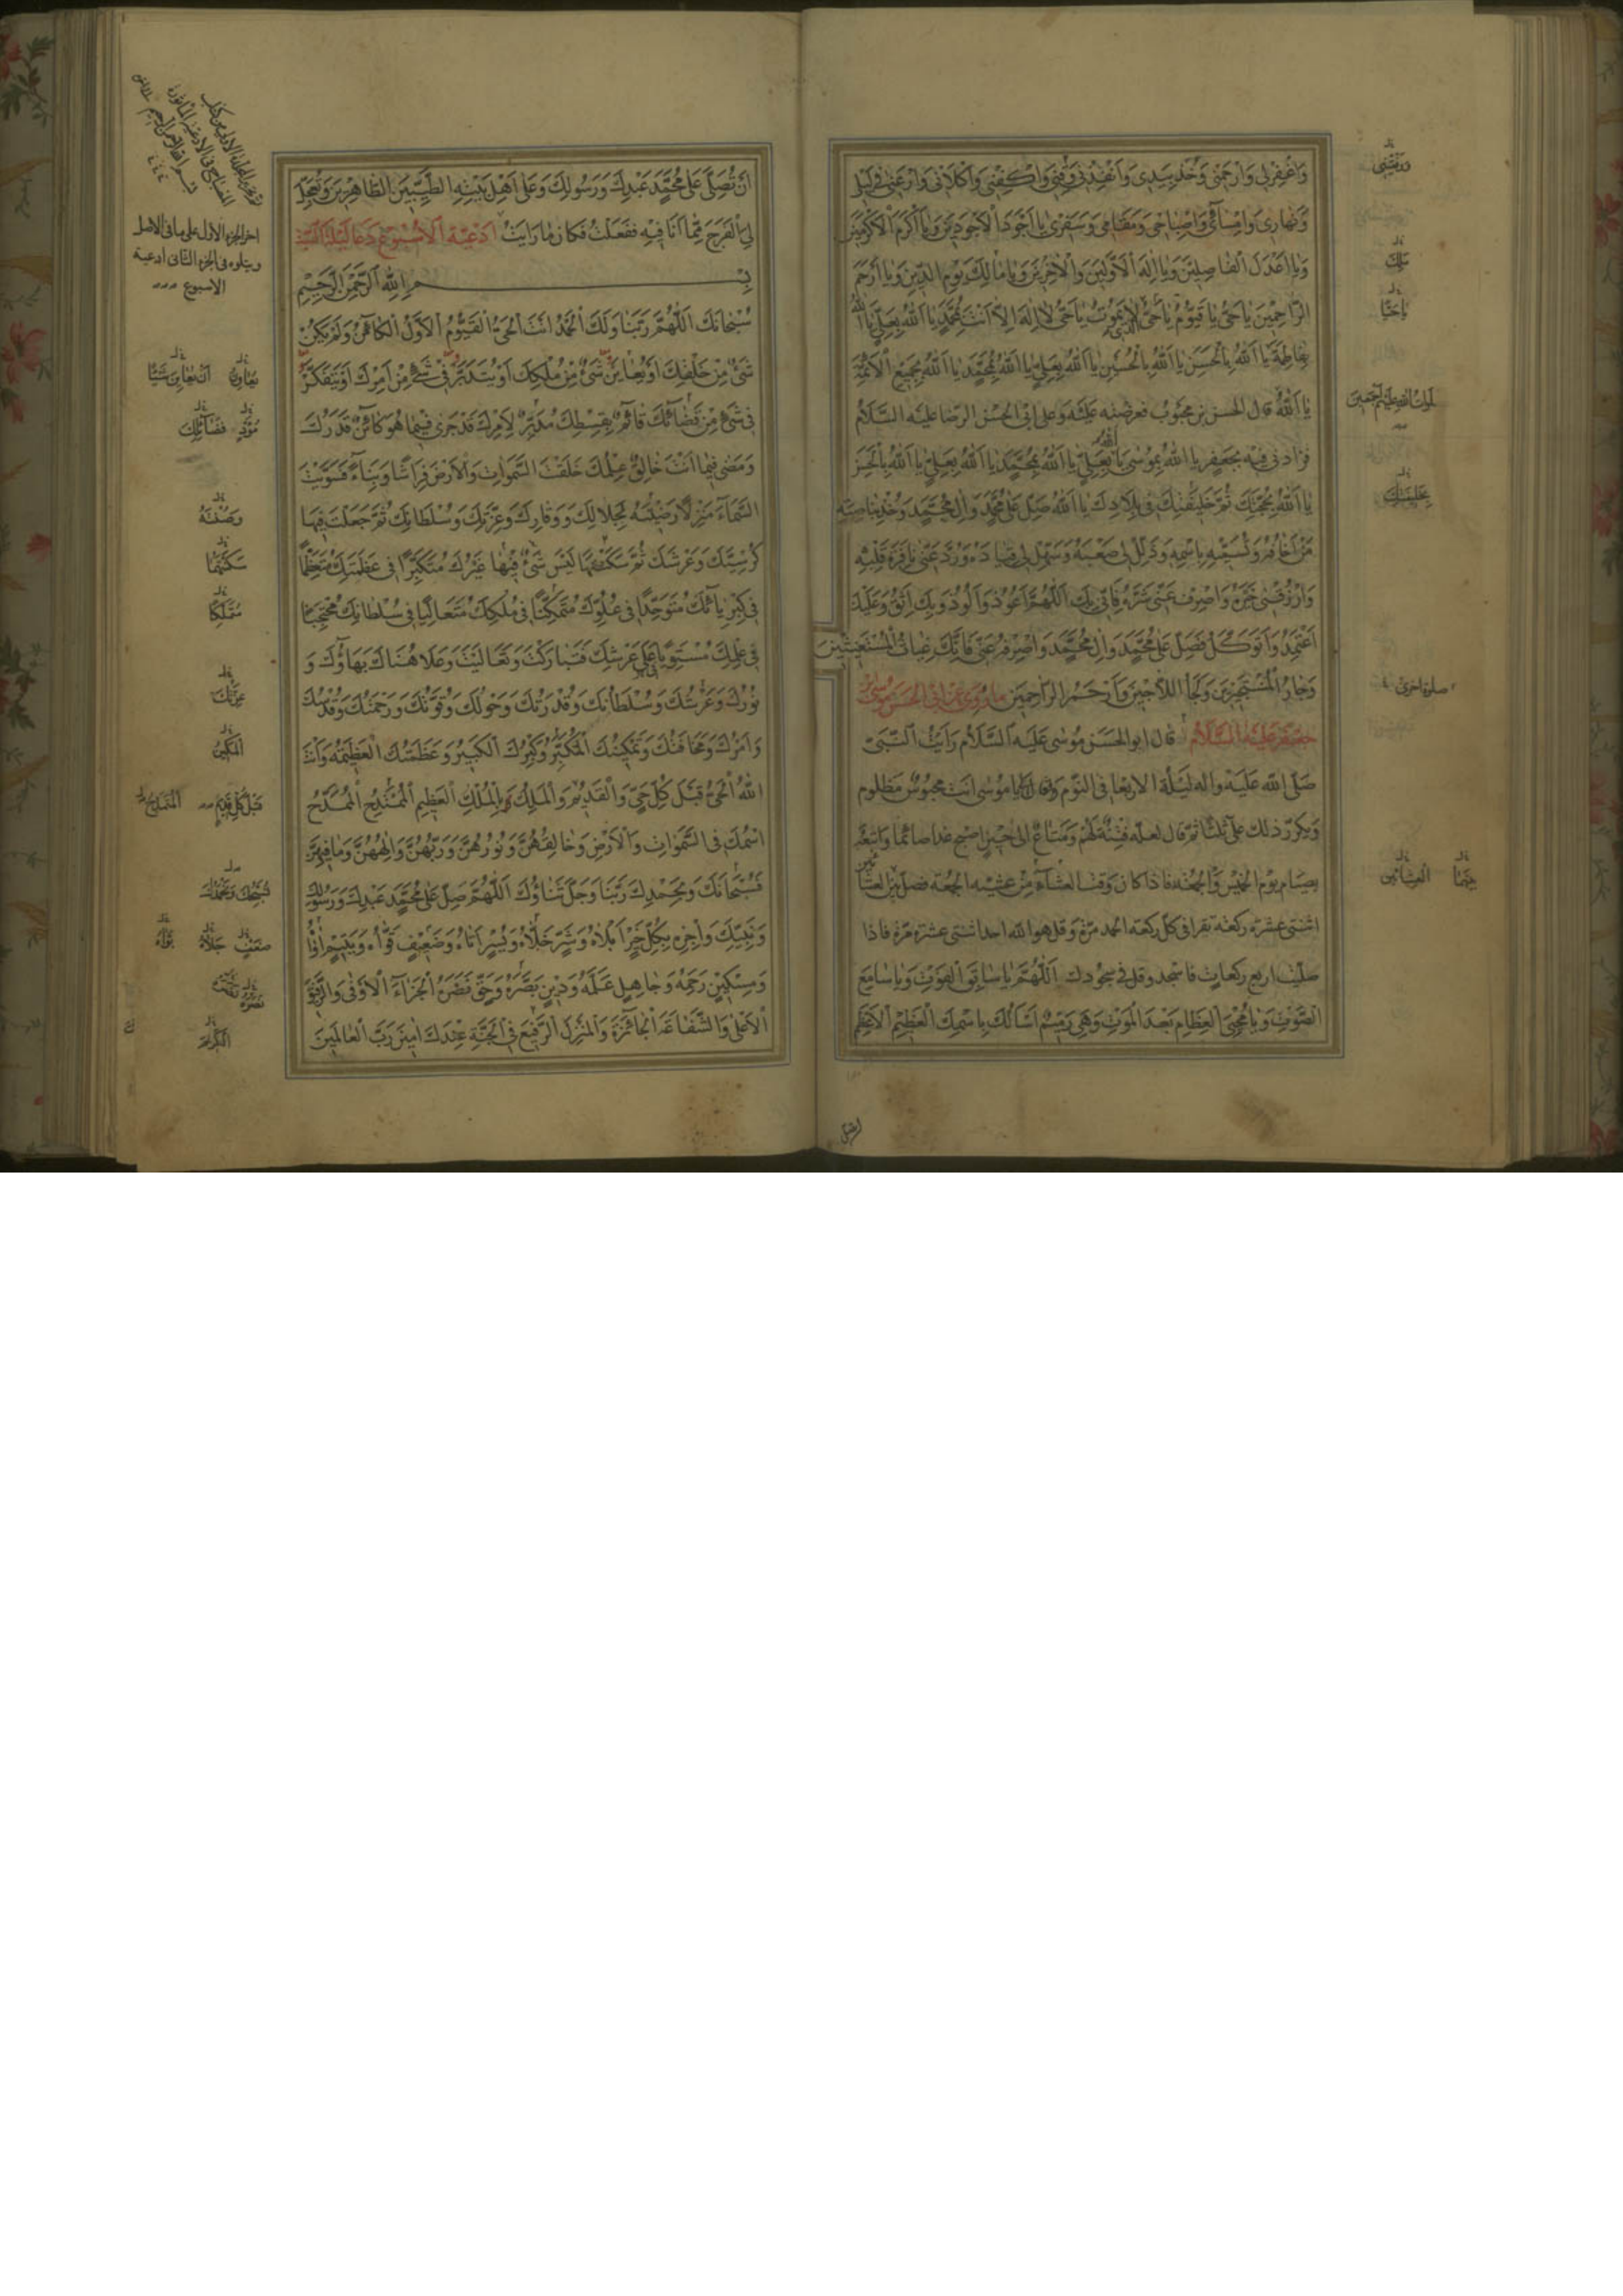 وَاغْفِرْلِى وَارْحَمْنِى وَخُذْ بِيَدِى وَانْقِذْنِى وَقِنِى وَاكْفِنِى وَاكْلَأْنِى وَارْعَنِى فِى لَيْلِى
وَنَهَارِى وَاِمْسَائِى وَاِصْبَاحِى وَمَقَامِى وَسَفَرِى يَا اَجْوَدَ الْاَجْوَدِيْنَ وَيَا اَكْرَمَ الْاَكْرَمِيْنَ
وَيَا اَعْدَلَ الْفَاصِلِيْنَ وَيَا اِلٰهَ الْاَوَّلِيْنَ وَالْاٰخِرِيْنَ وَيَا مَالِكَ يَوْمِ الدِّيْنِ وَيَا اَرْحَمَ
الرَّاحِمِيْنَ يَا حَىُّ يَا قَيُّوْمُ يَا حَىُّ لَا يَمُوْتُ يَا حَىُّ لَا اِلٰهَ اِلَّا اَنْتَ بِمُحَمَّدٍ يَا اَللّٰهُ بِعَلِىٍّ يَا اَللّٰهُ
بِفَاطِمَةَ يَا اَللّٰهُ بِالْحَسَنِ يَا اَللّٰهُ بِالْحُسَيْنِ يَا اَللّٰهُ بِعَلِىٍّ يَا اَللّٰهُ بِمُحَمَّدٍ يَا اَللّٰهُ بِجَمِيْعِ الْاَئِمَّةِ
يَا اَللّٰهُ قال الحسن بن محبوب فعرضته على ابى الحسن الرضا عليه السلام
فزادنى فيه بجعفر يا اللّٰه بِمُوْسٰى يا اللّٰه بِعَلِىٍّ يا اَللّٰهُ بِمُحَمَّدٍ يا اَللّٰهُ بِعَلِىٍّ يا اَللّٰهُ بِالْحَسَنِ
يا اَللّٰهُ بِحُجَّتِكَ ثُمَّ خَلِيْفَتِكَ فِى بِلَادِكَ يا اَللّٰهُ صَلِّ عَلٰى مُحَمَّدٍ وَاٰلِ مُحَمَّدٍ وَخُذْ بِنَاصِيَةِ
مَنْ اَخَافُهُ وَتُسَمِّيْهِ بِاسْمِهِ وَذَلِّلْ لِى صَعْبَهُ وَسَهِّلْ لِى قِيَادَهُ وَرُدَّ عَنِّى نَافِرَةَ قَلْبِهِ
وَارْزُقْنِى خَيْرَهُ وَاصْرِفْ عَنِّى شَرَّهُ فَاِنِّى بِكَ اَللّٰهُمَّ اَعُوْذُ وَاَلُوْذُ وَبِكَ اَثِقُ وَعَلَيْكَ
اَعْتَمِدُ وَاَتَوَكَّلُ فَصَلِّ عَلٰى مُحَمَّدٍ وَاٰلِ مُحَمَّدٍ وَاصْرِفْهُ عَنِّى فَاِنَّكَ غِيَاثُ الْمُسْتَغِيْثِيْنَ
وَجَارُ الْمُسْتَجِيْرِيْنَ وَلَجَأُ اللَّاجِيْنَ وَاَرْحَمُ الرَّاحِمِيْنَ ما روى عن ابى الحسن موسى بن
جعفر عليه السلام قال ابو الحسن موسى عليه السلام رايت النبى
صلى اللّٰه عليه واله ليلة الاربعا فى النوم وقال لى يا موسى انت محبوس مظلوم
ويكرر ذلك على ثلثا ثم قال لعلّه فتنة لهم ومتاع الى حين اصبح غدا صائما واتبعه
بصيام يوم الخميس والجمعة فاذا كان وقت العشاء من عشية الجمعة فصل بين العشا
اثنتى عشرة ركعة تقرا فى كل ركعة الحمد مرة وقل هو اللّٰه احد اثنتى عشرة مرة فاذا
صليت اربع ركعات فاسجد وقل فى سجودك اَللّٰهُمَّ يَا سَابِقَ الْفَوْتِ وَيَا سَامِعَ
الصَّوْتِ وَيَا مُحْيِىَ الْعِظَامِ بَعْدَ الْمَوْتِ وَهِىَ رَمِيْمٌ اَسْأَلُكَ بِاسْمِكَ الْعَظِيْمِ الْاَعْظَمِ
صلوة اخرى
ان تصلى
اَنْ تُصَلِّىَ عَلٰى مُحَمَّدٍ عَبْدِكَ وَرَسُوْلِكَ وَعَلٰى اَهْلِ بَيْتِهِ الطَّيِّبِيْنَ الطَّاهِرِيْنَ وَتُعَجِّلَ
لِىَ الْفَرَجَ مِمَّا اَنَا فِيْهِ فَفَعَلْتُ فَكَانَ مَا رَاَيْتَ ادعية الاسبوع دعا ليلة السبت
بِسْمِ اللّٰهِ الرَّحْمٰنِ الرَّحِيْمِ
سُبْحَانَكَ اَللّٰهُمَّ رَبَّنَا وَلَكَ الْحَمْدُ اَنْتَ الْحَىُّ الْقَيُّوْمُ الْاَوَّلُ الْكَائِنُ وَلَمْ يَكُنْ
شَىْءٌ مِنْ خَلْقِكَ اَوْ يُعَايِنُ شَىْءٌ مِنْ مُلْكِكَ اَوْ يُتَدَبَّرُ فِى شَىْءٍ مِنْ اَمْرِكَ اَوْ يَتَفَكَّرُ
فِى شَىْءٍ مِنْ قَضَائِكَ قَائِمٌ بِقِسْطِكَ مُدَبِّرٌ لِاَمْرِكَ قَدْ جَرٰى فِيْمَا هُوَ كَائِنٌ قَدَرُكَ
وَمَضٰى فِيْمَا اَنْتَ خَالِقٌ عِلْمُكَ خَلَقْتَ السَّمٰوَاتِ وَالْاَرْضَ فِرَاشًا وَبِنَاءً فَسَوَّيْتَ
السَّمَاءَ مَنْزِلًا رَضِيْتَهُ لِجَلَالِكَ وَوَقَارِكَ وَعِزَّتِكَ وَسُلْطَانِكَ ثُمَّ جَعَلْتَ فِيْهَا
كُرْسِيَّكَ وَعَرْشَكَ ثُمَّ سَكَنْتَهَا لَيْسَ شَىْءٌ فِيْهَا غَيْرُكَ مُتَكَبِّرًا فِى عَظَمَتِكَ مُتَعَظِّمًا
فِى كِبْرِيَائِكَ مُتَوَحِّدًا فِى عُلُوِّكَ مُتَمَكِّنًا فِى مُلْكِكَ مُتَعَالِيًا فِى سُلْطَانِكَ مُحْتَجِبًا
فِى عِلْمِكَ مُسْتَوِيًا عَلٰى عَرْشِكَ فَتَبَارَكْتَ وَتَعَالَيْتَ وَعَلَا هُنَاكَ بَهَاؤُكَ وَ
نُوْرُكَ وَعَرْشُكَ وَسُلْطَانُكَ وَقُدْرَتُكَ وَحَوْلُكَ وَقُوَّتُكَ وَرَحْمَتُكَ وَقُدْسُكَ
وَاَمْرُكَ وَمَخَافَتُكَ وَتَمْكِيْنُكَ الْمُتَكَبِّرُ وَكِبْرُكَ الْكَبِيْرُ وَعَظَمَتُكَ الْعَظِيْمَةُ وَاَنْتَ
اللّٰهُ الْحَىُّ قَبْلَ كُلِّ حَىٍّ وَالْقَدِيْمُ وَالْمَلِكُ بِالْمُلْكِ الْعَظِيْمِ الْمُمْتَدِحُ الْمُمَدَّحُ
اسْمُكَ فِى السَّمٰوَاتِ وَالْاَرْضِ وَخَالِقُهُنَّ وَنُوْرُهُنَّ وَرَبُّهُنَّ وَاِلٰهُهُنَّ وَمَا فِيْهِنَّ
فَسُبْحَانَكَ وَبِحَمْدِكَ رَبَّنَا وَجَلَّ ثَنَاؤُكَ اَللّٰهُمَّ صَلِّ عَلٰى مُحَمَّدٍ عَبْدِكَ وَرَسُوْلِكَ
وَنَبِيِّكَ وَاجْزِهِ بِكُلِّ خَيْرٍ اَبْلَاهُ وَشَرٍّ جَلَّاهُ وَيُسْرٍ اَتَاهُ وَضَعِيْفٍ قَوَّاهُ وَيَتِيْمٍ اٰوَاهُ
وَمِسْكِيْنٍ رَحِمَهُ وَجَاهِلٍ عَلَّمَهُ وَدِيْنٍ بَصَّرَهُ وَحَقٍّ نَصَرَهُ الْجَزَاءَ الْاَوْفٰى وَالرَّفِيْقَ
الْاَعْلٰى وَالشَّفَاعَةَ الْجَائِزَةَ وَالْمَنْزِلَ الرَّفِيْعَ فِى الْجَنَّةِ عِنْدَكَ اٰمِيْنَ رَبَّ الْعَالَمِيْنَ
اخر الجزء الاول على ما فى الاصل
ويتلوه فى الجزء الثانى ادعية
الاسبوع